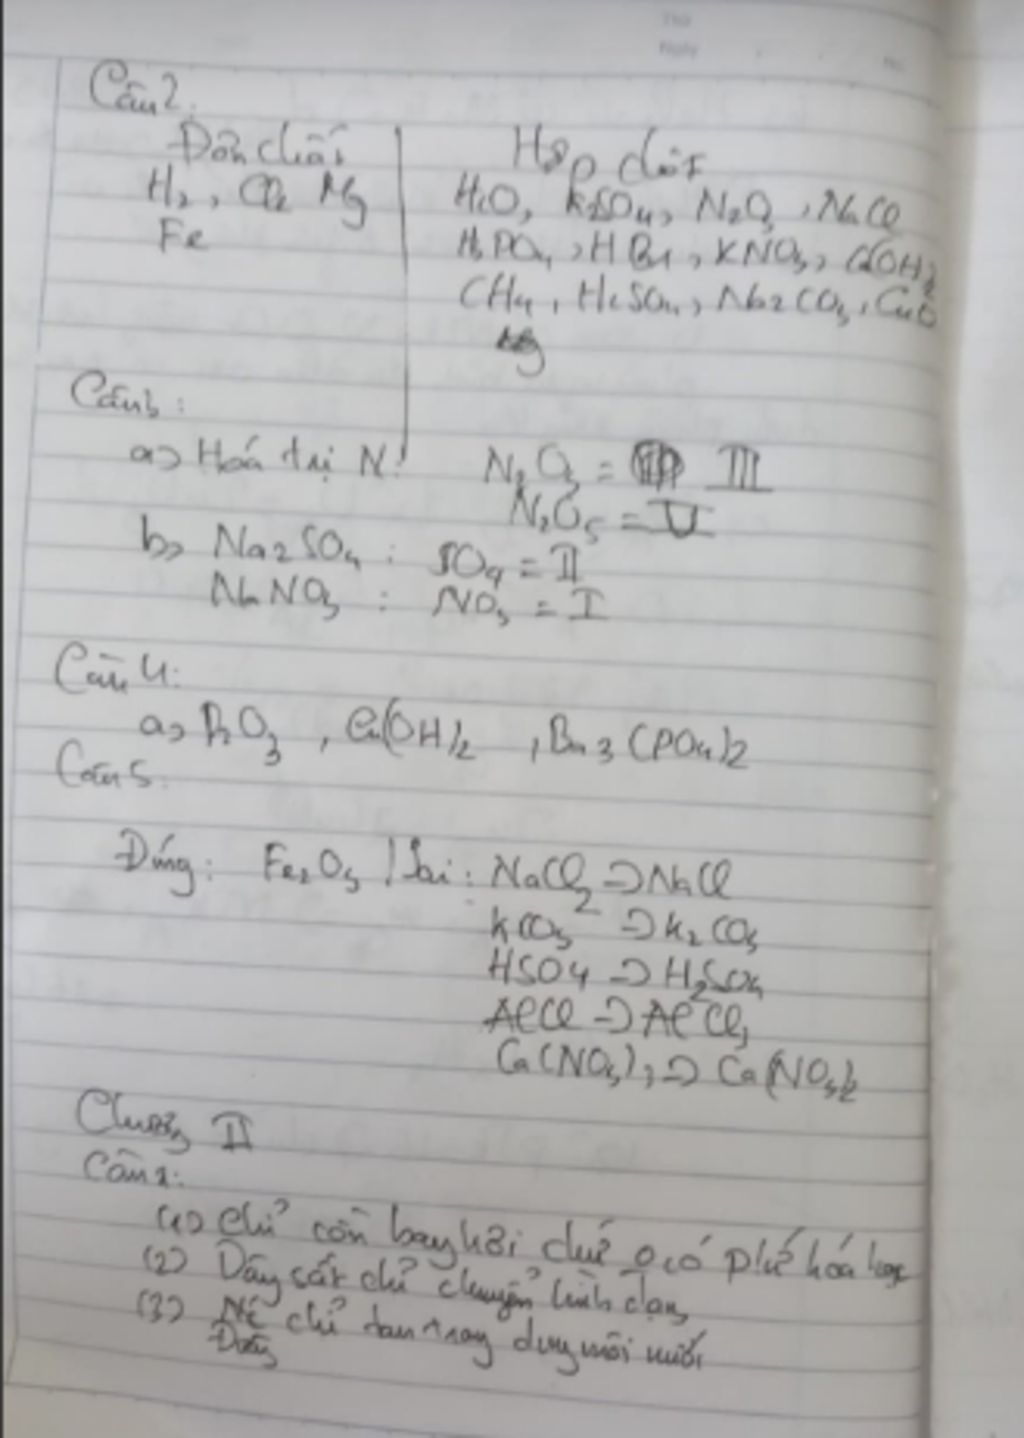 Thứ
Ngày
No.
Câu 2.
Đơn chất Hợp chất
H2, Cl2 Mg H2O, K2SO4, N2O3, NaCl
Fe H3PO4, HBr, KNO3, Ca(OH)2
CH4, H2SO4, Na2CO3, CuO
Câu 3:
a) Hoá trị N: N2O3 = III
N2O5 = V
b) Na2SO4 : SO4 = II
NaNO3 : NO3 = I
Câu 4:
a) O3 , (OH)2 , 3(PO4)2
Câu 5.
Đúng: Fe2O3 / Sai: NaCl2 => NaCl
KCO3 => K2CO3
HSO4 => H2SO4
AlCl => AlCl3
Ca(NO3)3 => Ca(NO3)2
Chương II
Câu 1:
(1) Chỉ cồn bay hơi chứ 0 có p/ứ hoá học
(2) Dây sắt chỉ chuyển hình dạng
(3) Nó chỉ tan trong dung môi nước
Đường